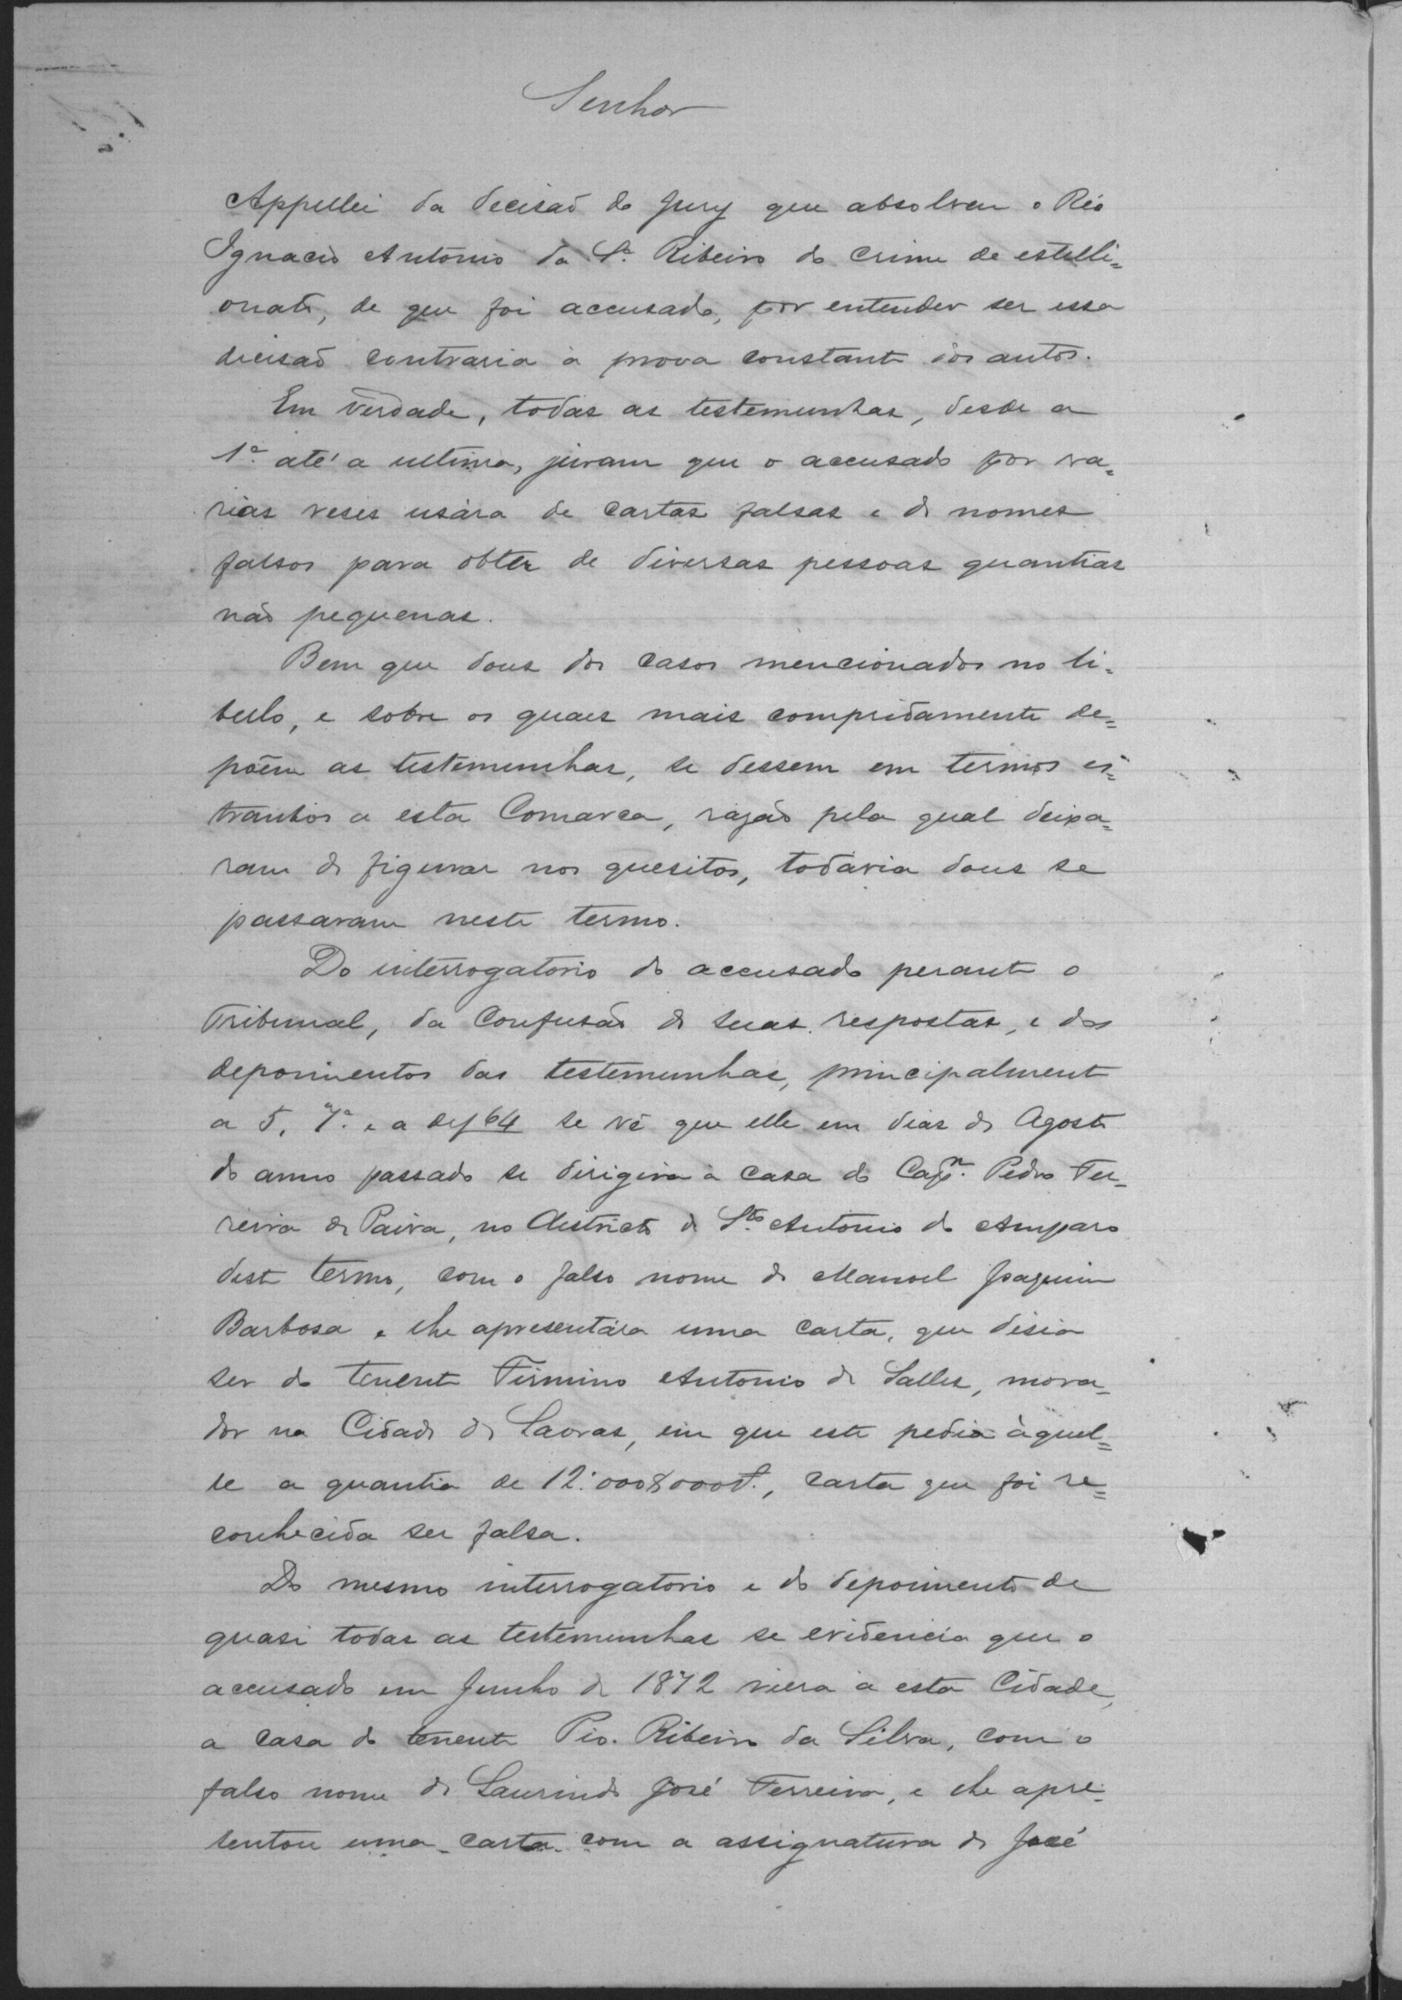 Senhor
Appellei da decisaõ do Jury que absolveu o Réo
Ignacio Antonio da Sª. Ribeiro do crime de estelli=
onato, de que foi accusado, por entender ser essa
decisaõ contraria à prova constante dos autos.
Em verdade, todas as testemunhas, desde a
1ª. até a ultima, juram que o accusado por va=
rias veses usára de cartas falsas e de nomes
falsos para obter de diversas pessoas quantias
não pequenas.
Bem que dous dos casos mencionados no li=
bello, e sobre os quaes mais compridamente de=
põem as testemunhas, se dessem em termos es=
tranhos a esta Comarca, rasão pela qual deixa=
ram de figurar nos quesitos, todavia dous se
passaram neste termo.
Do interrogatorio do accusado perante o
Tribunal, da confusão de suas respostas, e dos
depoimentos das testemunhas, principalmente
a 5, 7ª. e a de f 64 se vê que elle em dias de Agosto
do anno passado se dirigira à casa do Capᵐ. Pedro Fer=
reira de Paiva, no districto de Sᵗᵒ Antonio do Amparo
deste termo, com o falso nome de Manoel Joaquim
Barbosa e lhe apresentára uma carta, que disia
ser do tenente Firmino Antonio de Salles, mora=
dor na Cidade de Lavras, em que este pedia àquel=
le a quantia de 12:000$000, carta que foi re=
conhecida ser falsa.
Do mesmo interrogatorio e do depoimento de
quasi todas as testemunhas se evidencia que o
accusado em Junho de 1872 viera à esta Cidade,
a casa do tenente Pio Ribeiro da Silva, com o
falso nome de Laurindo José Ferreira, e lhe apre=
sentou uma carta com a assignatura de José